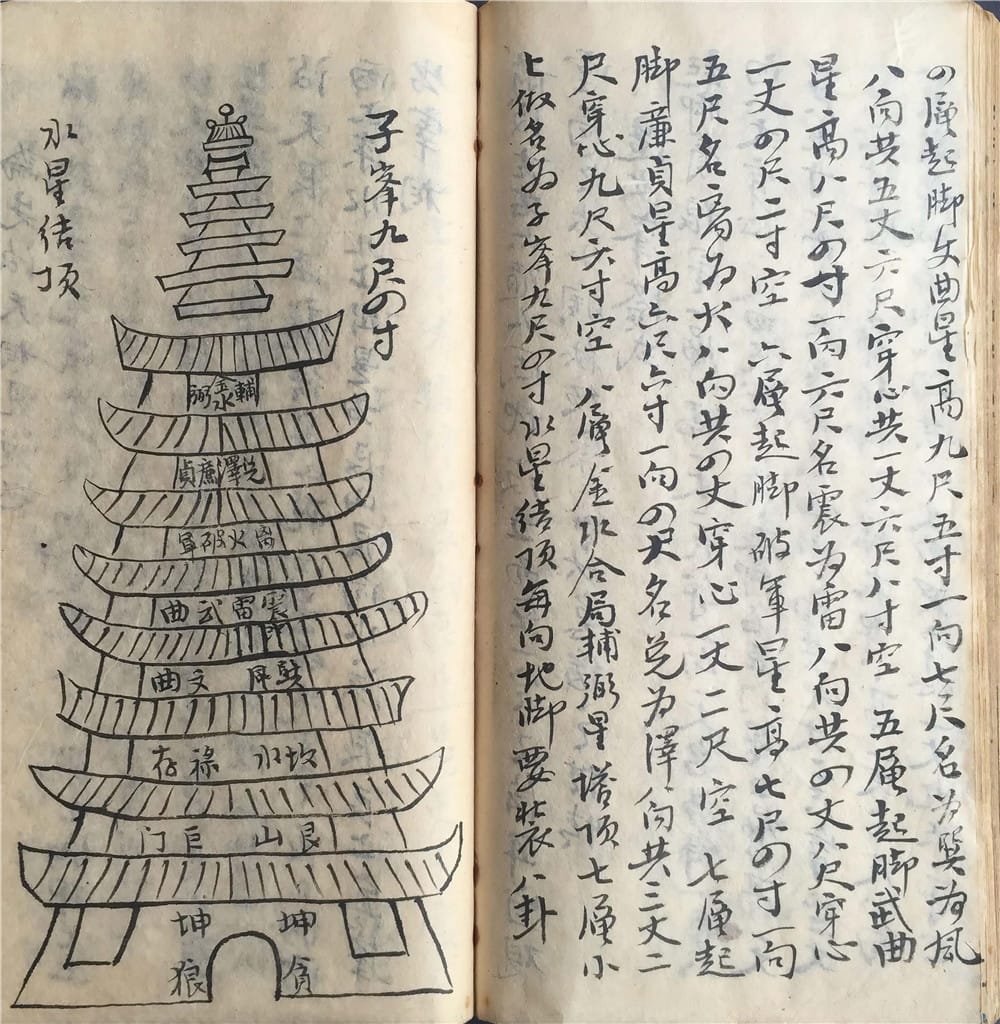 四層起脚文曲星高九尺五寸一向七尺名为巽为風
八向共五丈六尺穿心共一丈六尺八寸空 五層起脚武曲
星高八尺四寸一向六尺名震为雷八向共四丈八尺穿心
一丈四尺二寸空 六層起脚破軍星高七尺四寸一向
五尺名离为火八向共四丈穿心一丈二尺空 七層起
脚廉貞星高六尺六寸一向四尺名兑为澤八向共三丈二
尺穿心九尺六寸空 八層金水合局輔弼星塔顶七層小
七做名为子峯九尺四寸水星结顶每向地脚要裝八卦
子峯九尺四寸
水星结顶
輔金水弼
兑澤廉貞
离火破軍
震雷武曲
巽 文曲
坎水 祿存
艮山 巨门
坤 坤
貪 狼